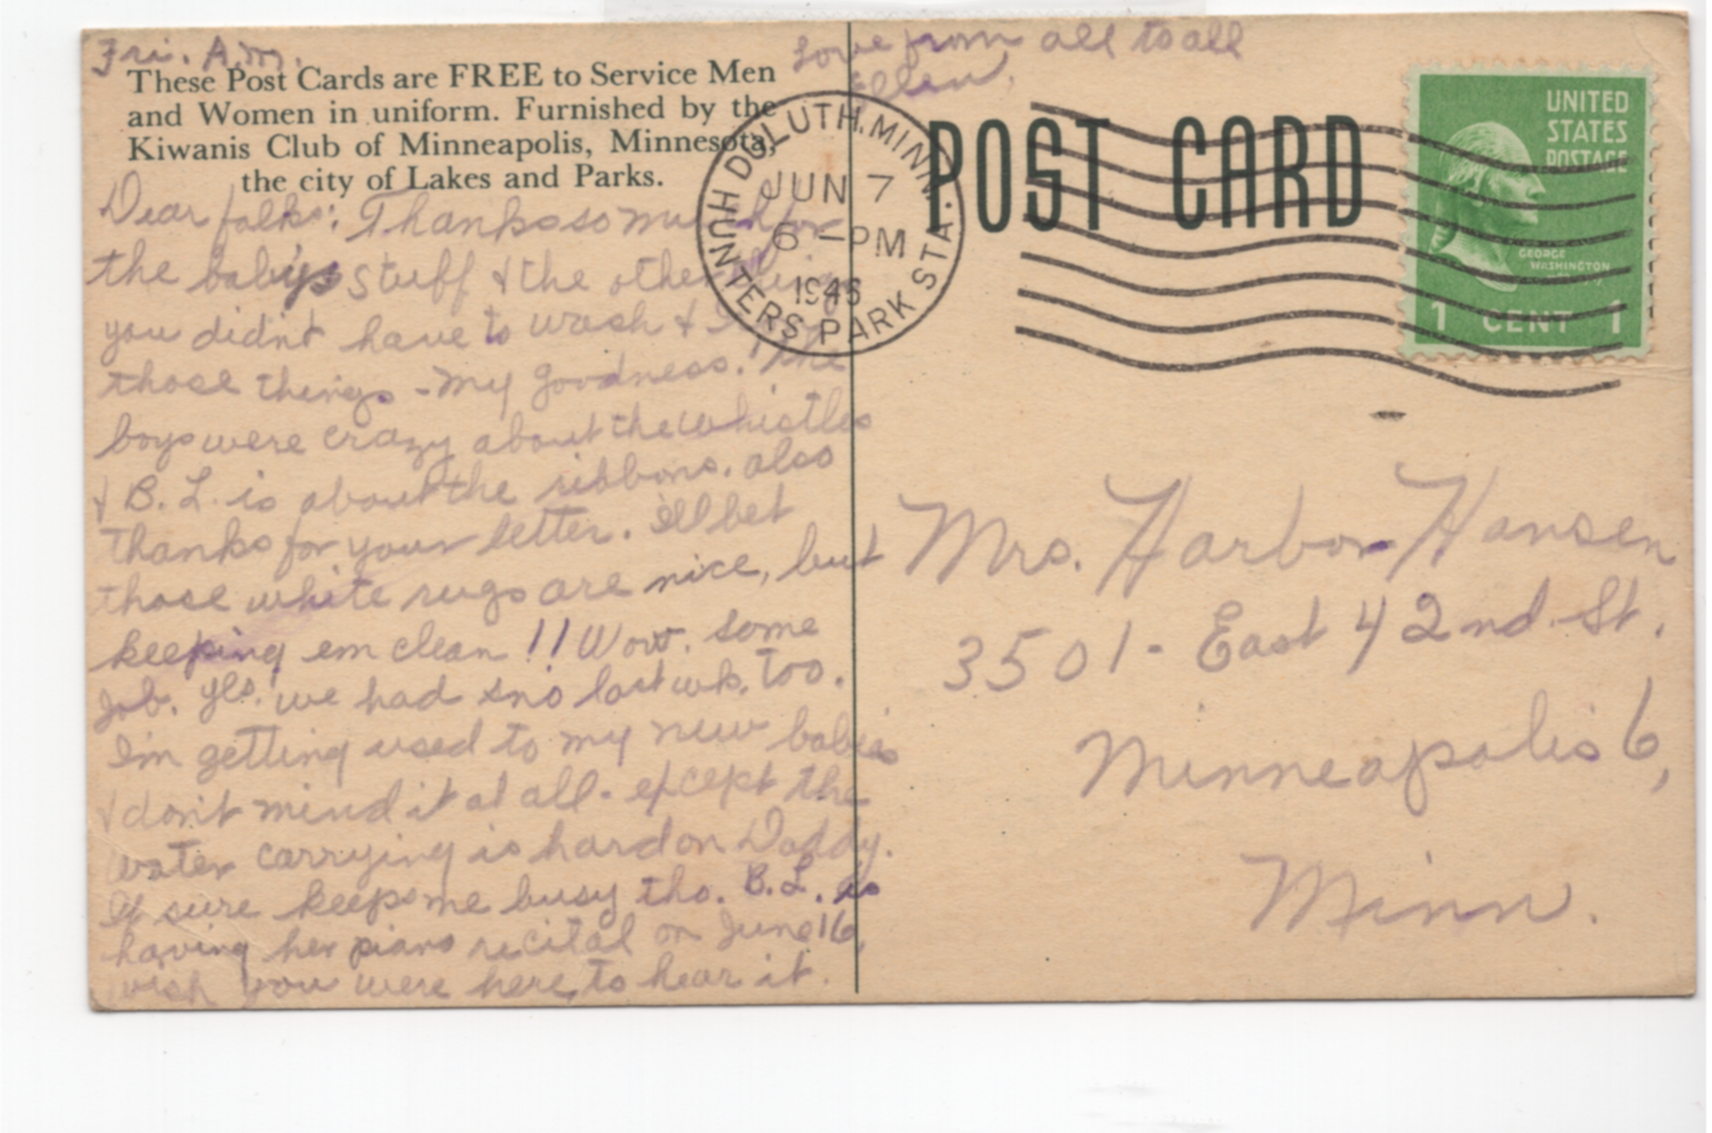 Fri. A.M.
These Post Cards are FREE to Service Men
and Women in uniform. Furnished by the
Kiwanis Club of Minneapolis, Minnesota,
the city of Lakes and Parks.
Dear folks: Thanks so much for
the baby's stuff & the other things
you didn't have to wash &
those things - my goodness. The
boys were crazy about the whistles
& B. L. is about the ribbons. also
thanks for your letter. I'll bet
those white rugs are nice, but
keeping em clean !! Wow. some
job. yes. we had sno last wk. too.
I'm getting used to my new babies
& don't mind it at all - except the
water carrying is hard on Daddy.
It sure keeps me busy tho. B.L. is
having her piano recital on June 16,
wish you were here to hear it.
Love from all to all
Ellen.
DULUTH, MINN.
HUNTERS PARK STA.
JUN 7
6 - PM
1946
POST CARD
UNITED
STATES
POSTAGE
GEORGE
WASHINGTON
1 CENT 1
Mrs. Harbor Hansen
3501 - East 42nd St.
Minneapolis 6,
Minn.